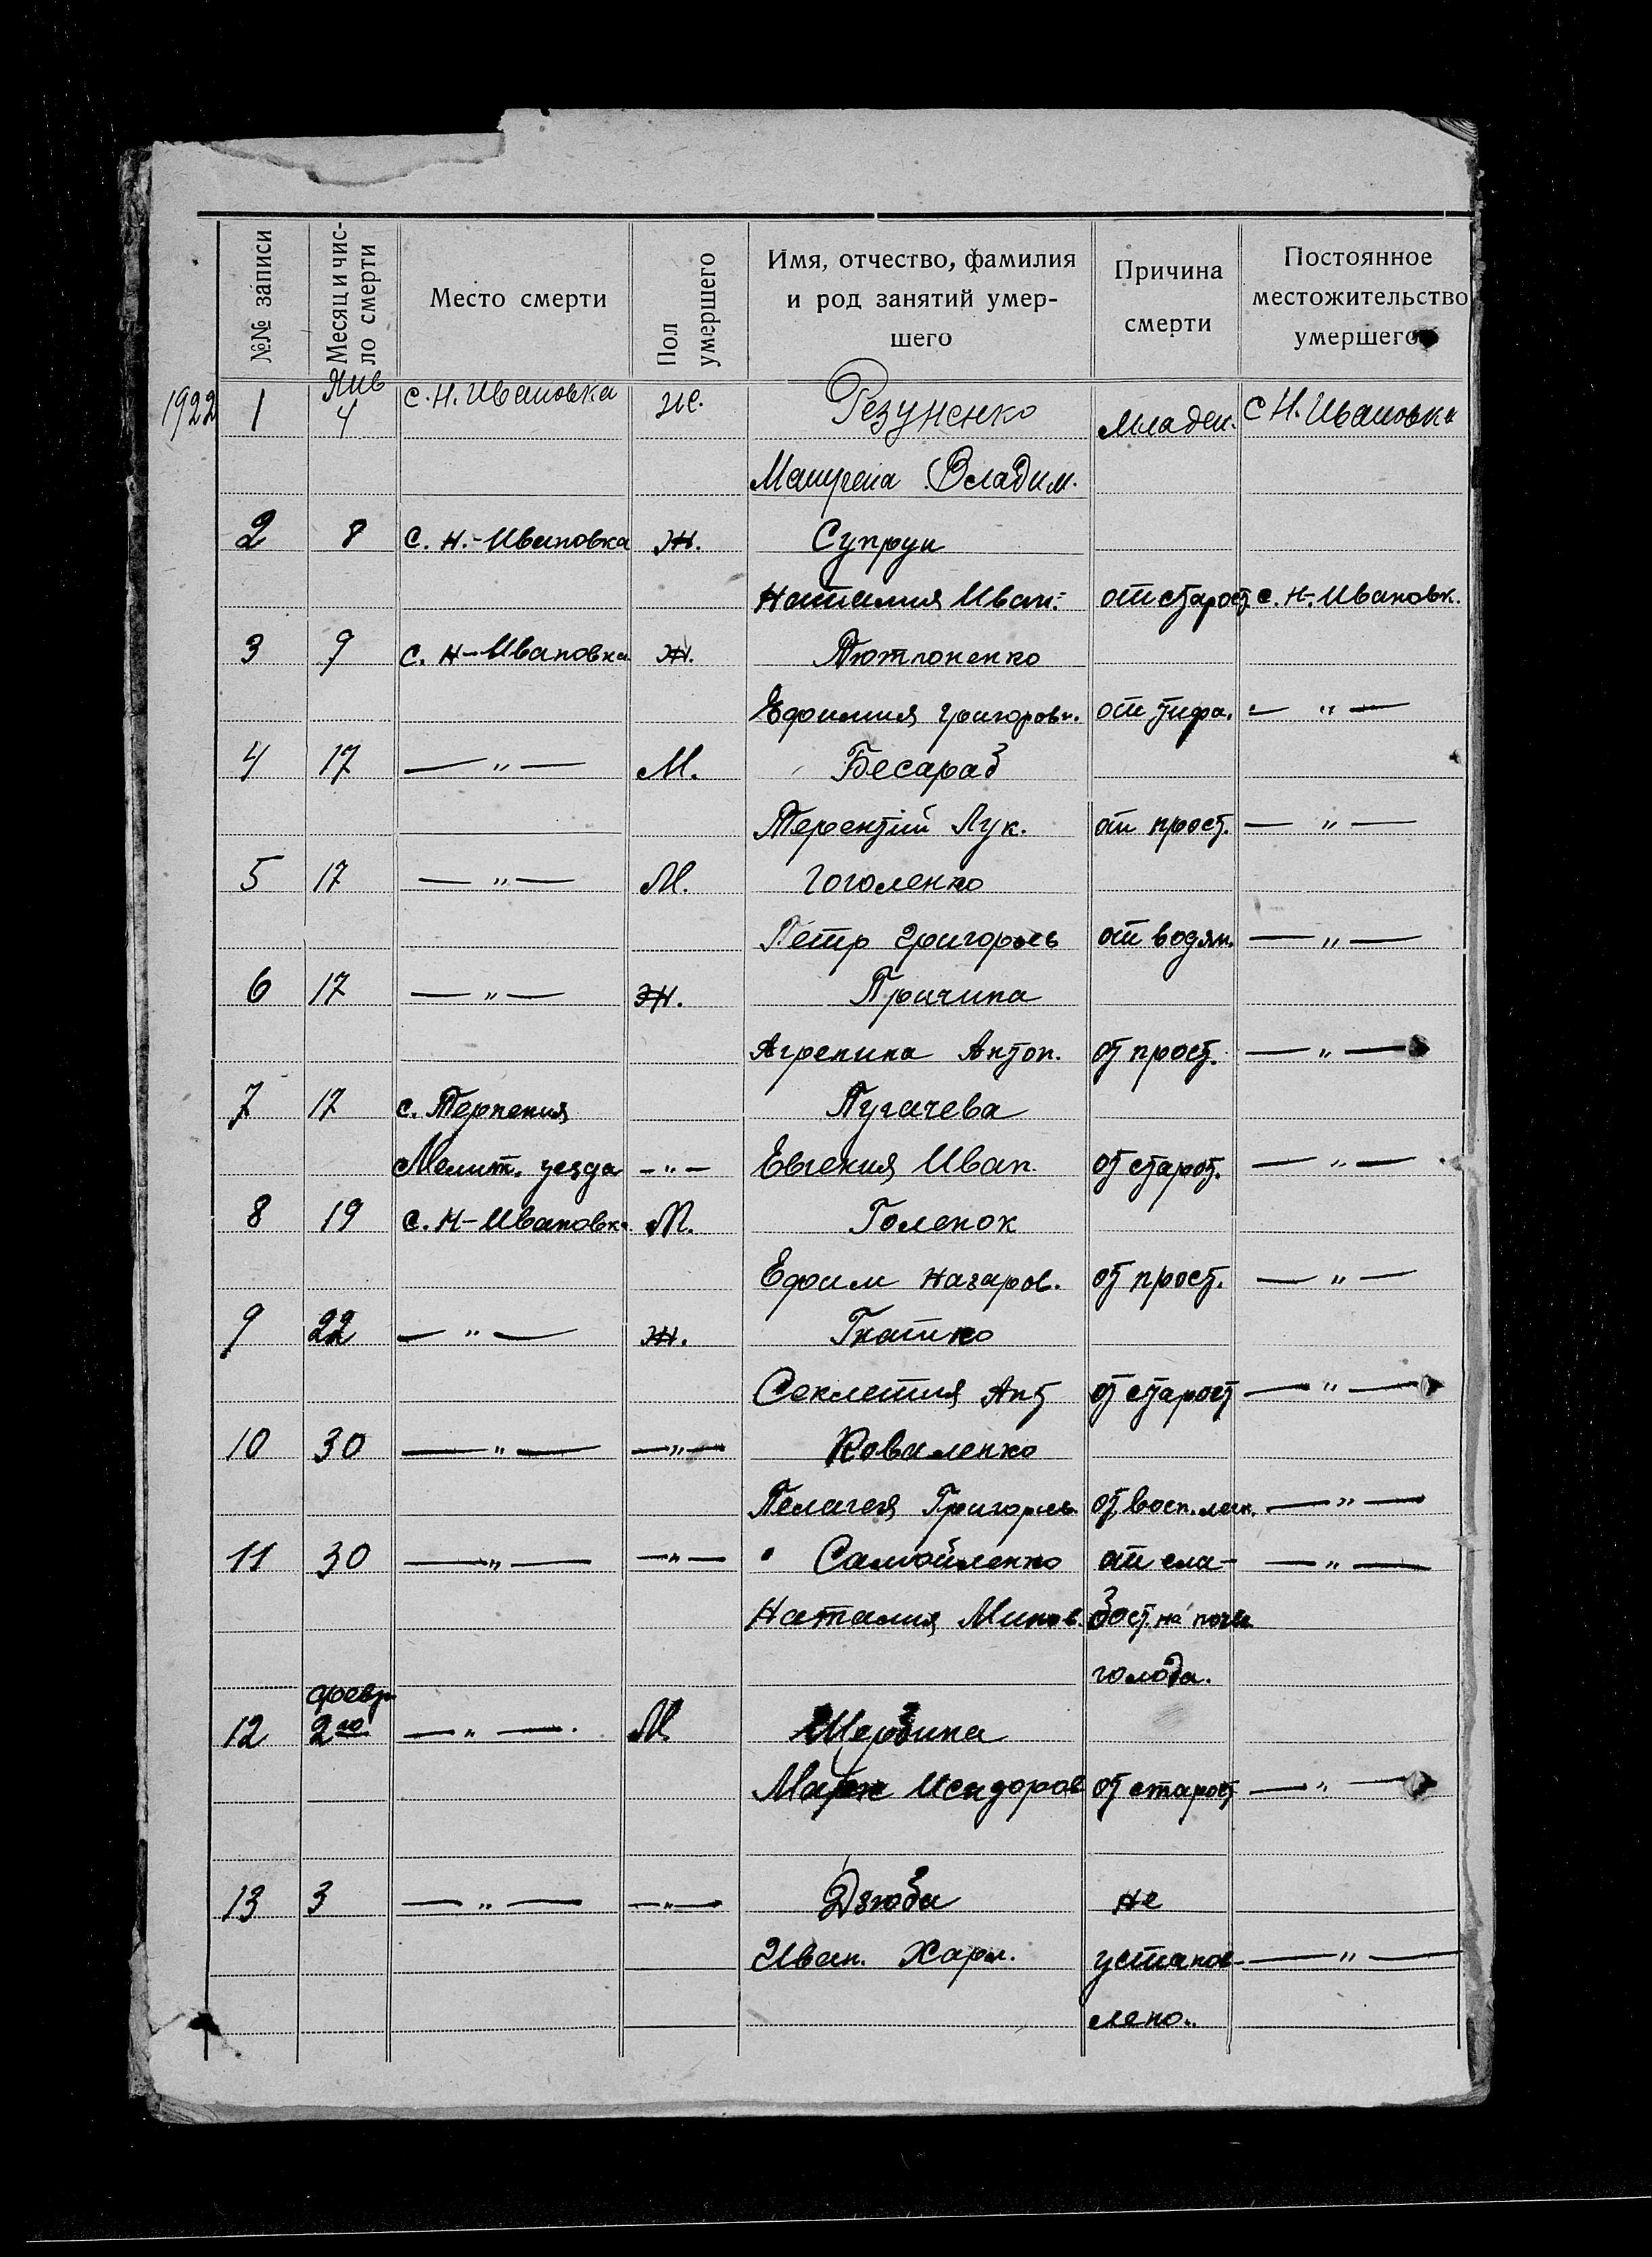 №№ записи
Месяц и чис-
ло смерти
Место смерти
Пол
умершего
Имя, отчество, фамилия
и род занятий умер-
шего
Причина
смерти
Постоянное
местожительство
умершего
Янв
1922 1 4 с. Н. Ивановка ж. Резуненко младен. с Н. Ивановка
Владим.
2 8 с. Н.-Ивановка Ж. Супрун
Наталия Иван. от старост. с. Н-. Ивановк.
3 9 с. Н-Ивановка Ж. Тютюненко
Ефимия Григоровн. от тифа. — " —
4 17 — " — М. Бесараб
Терентий Лук. от прост. — " —
5 17 — " — М. Гоголенко
Петр Григорьев от водян. — " —
6 17 — " — Ж. Причина
Агрепина Антон. от прост. — " —
7 17 с. Терпения Пугачева
Мелит. уезда — " — Евгения Иван. от старост. — " —
8 19 с. Н-Ивановка М. Голенок
Ефим Назаров. от прост. — " —
9 22 — " — Ж. Гнатко
Секлетия Ант от старост — " —
10 30 — " — — " — Коваленко
Пелагея Григорьев. от восп. лег. — " —
11 30 — " — — " — Самойленко от сла- — " —
Наталия Минов. бост. на почв.
голода.
февр
12 2го — " — М. Щербина
Марк Исидоров от старост — " —
13 3 — " — — " — Дзюба не
Иван. Харл. установ- — " —
лено.